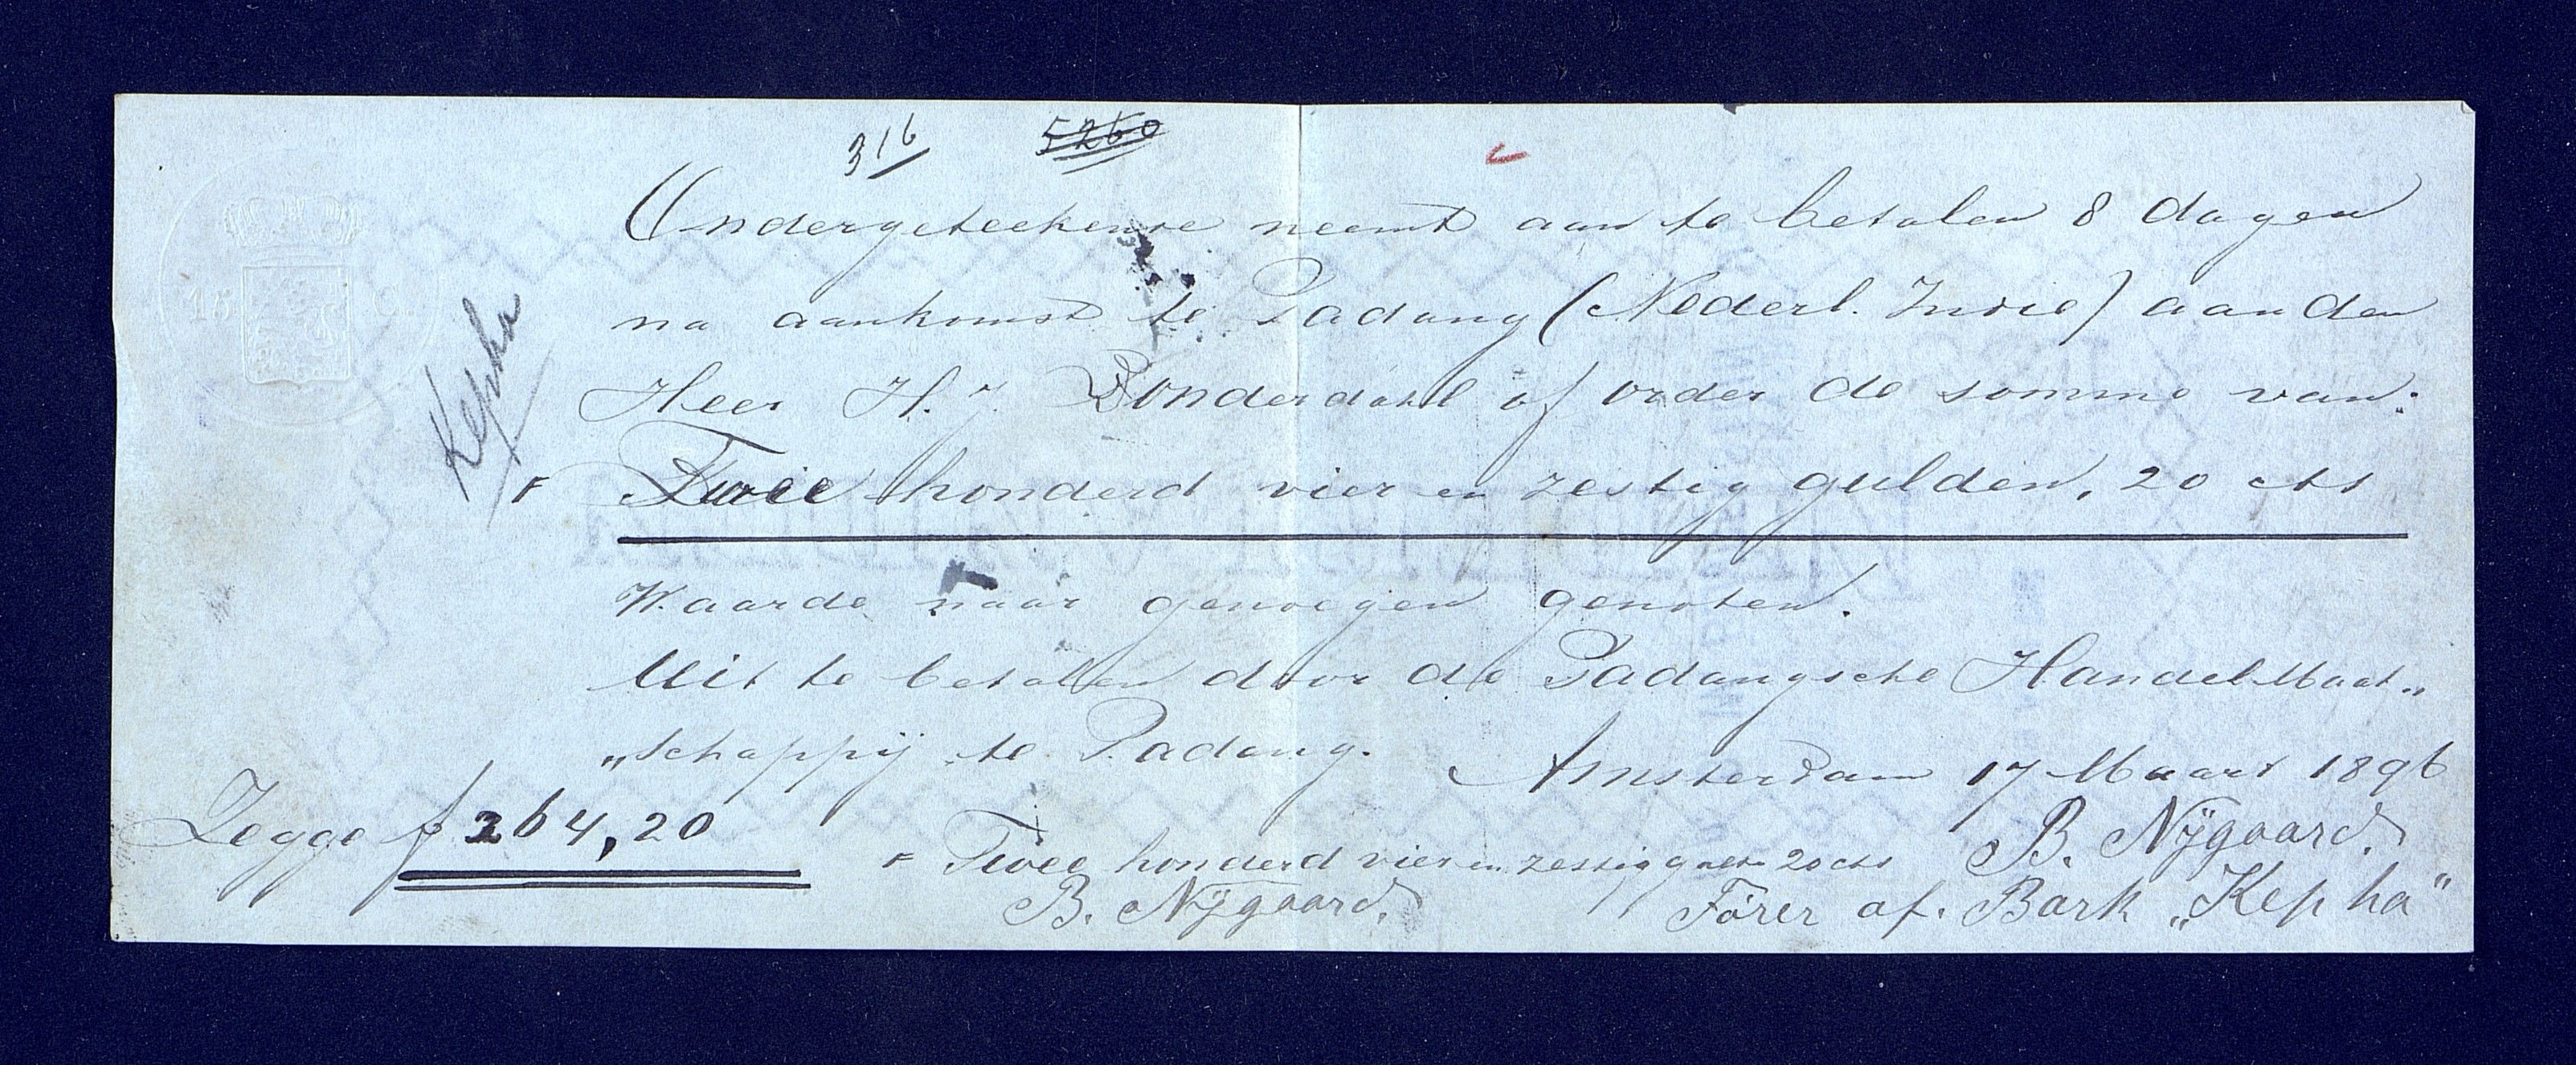 316 5260
Ondergeteekende neemt aan te betalen 8 dagen
na aankomst te Padang (Nederl. Indie) aan den
Kepha
Heer H. J. Donderdahl of order de somma van:
Twee honderd vier en zestig gulden, 20 cts
Waarde naar genoegen genoten.
Uit te betalen door de Padangsche Handel Maat„
„schappij te Padang.
Amsterdam 17 Maart 1896
Zegge f 264,20
Twee honderd vier en zestig guld 20 cts
B. Nÿgaard.
B. Nÿgaard.
Förer af. Bark „Kepha"